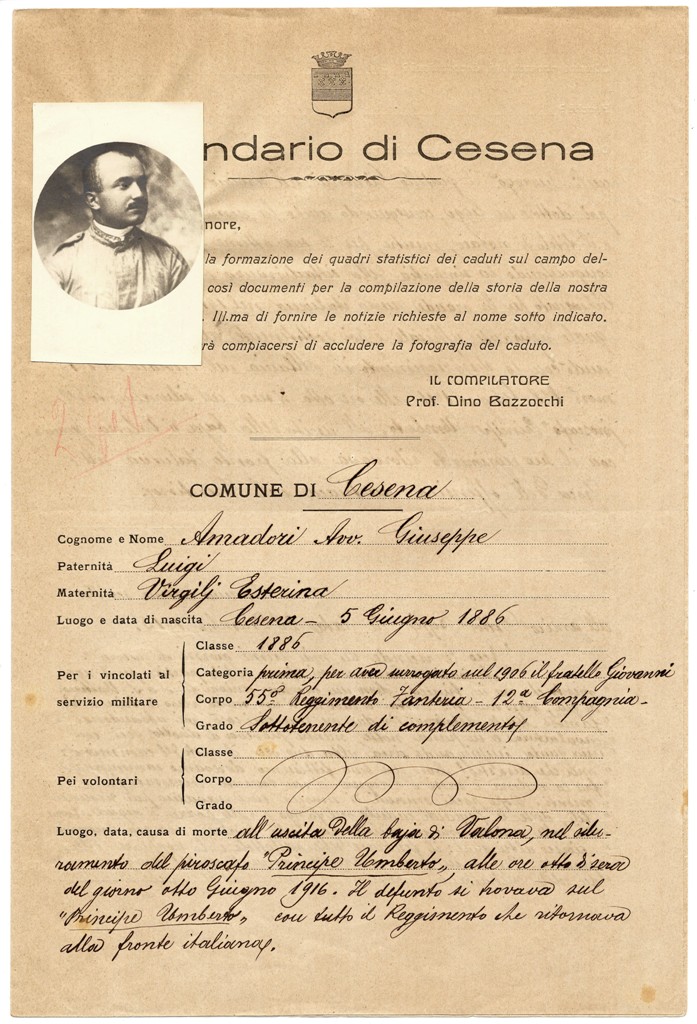 ndario di Cesena
nore,
la formazione dei quadri statistici dei caduti sul campo del-
così documenti per la compilazione della storia della nostra
. Ill.ma di fornire le notizie richieste al nome sotto indicato.
rà compiacersi di accludere la fotografia del caduto.
IL COMPILATORE
Prof. Dino Bazzocchi
COMUNE DI Cesena
Cognome e Nome Amadori Avv. Giuseppe
Paternità Luigi
Maternità Virgilj Esterina
Luogo e data di nascita Cesena - 5 Giugno 1886
Per i vincolati al servizio militare
Classe 1886
Categoria prima, per aver surrogato sul 1906 il fratello Giovanni
Corpo 55º Reggimento Fanteria - 12ª Compagnia -
Grado Sottotenente di complemento
Pei volontari
Classe
Corpo
Grado
Luogo, data, causa di morte all'uscita della baja di Valona, nel silu-
ramento del piroscafo "Principe Umberto", alle ore otto di sera
del giorno otto Giugno 1916. Il defunto si trovava sul
"Principe Umberto", con tutto il Reggimento che ritornava
alla fronte italiana.